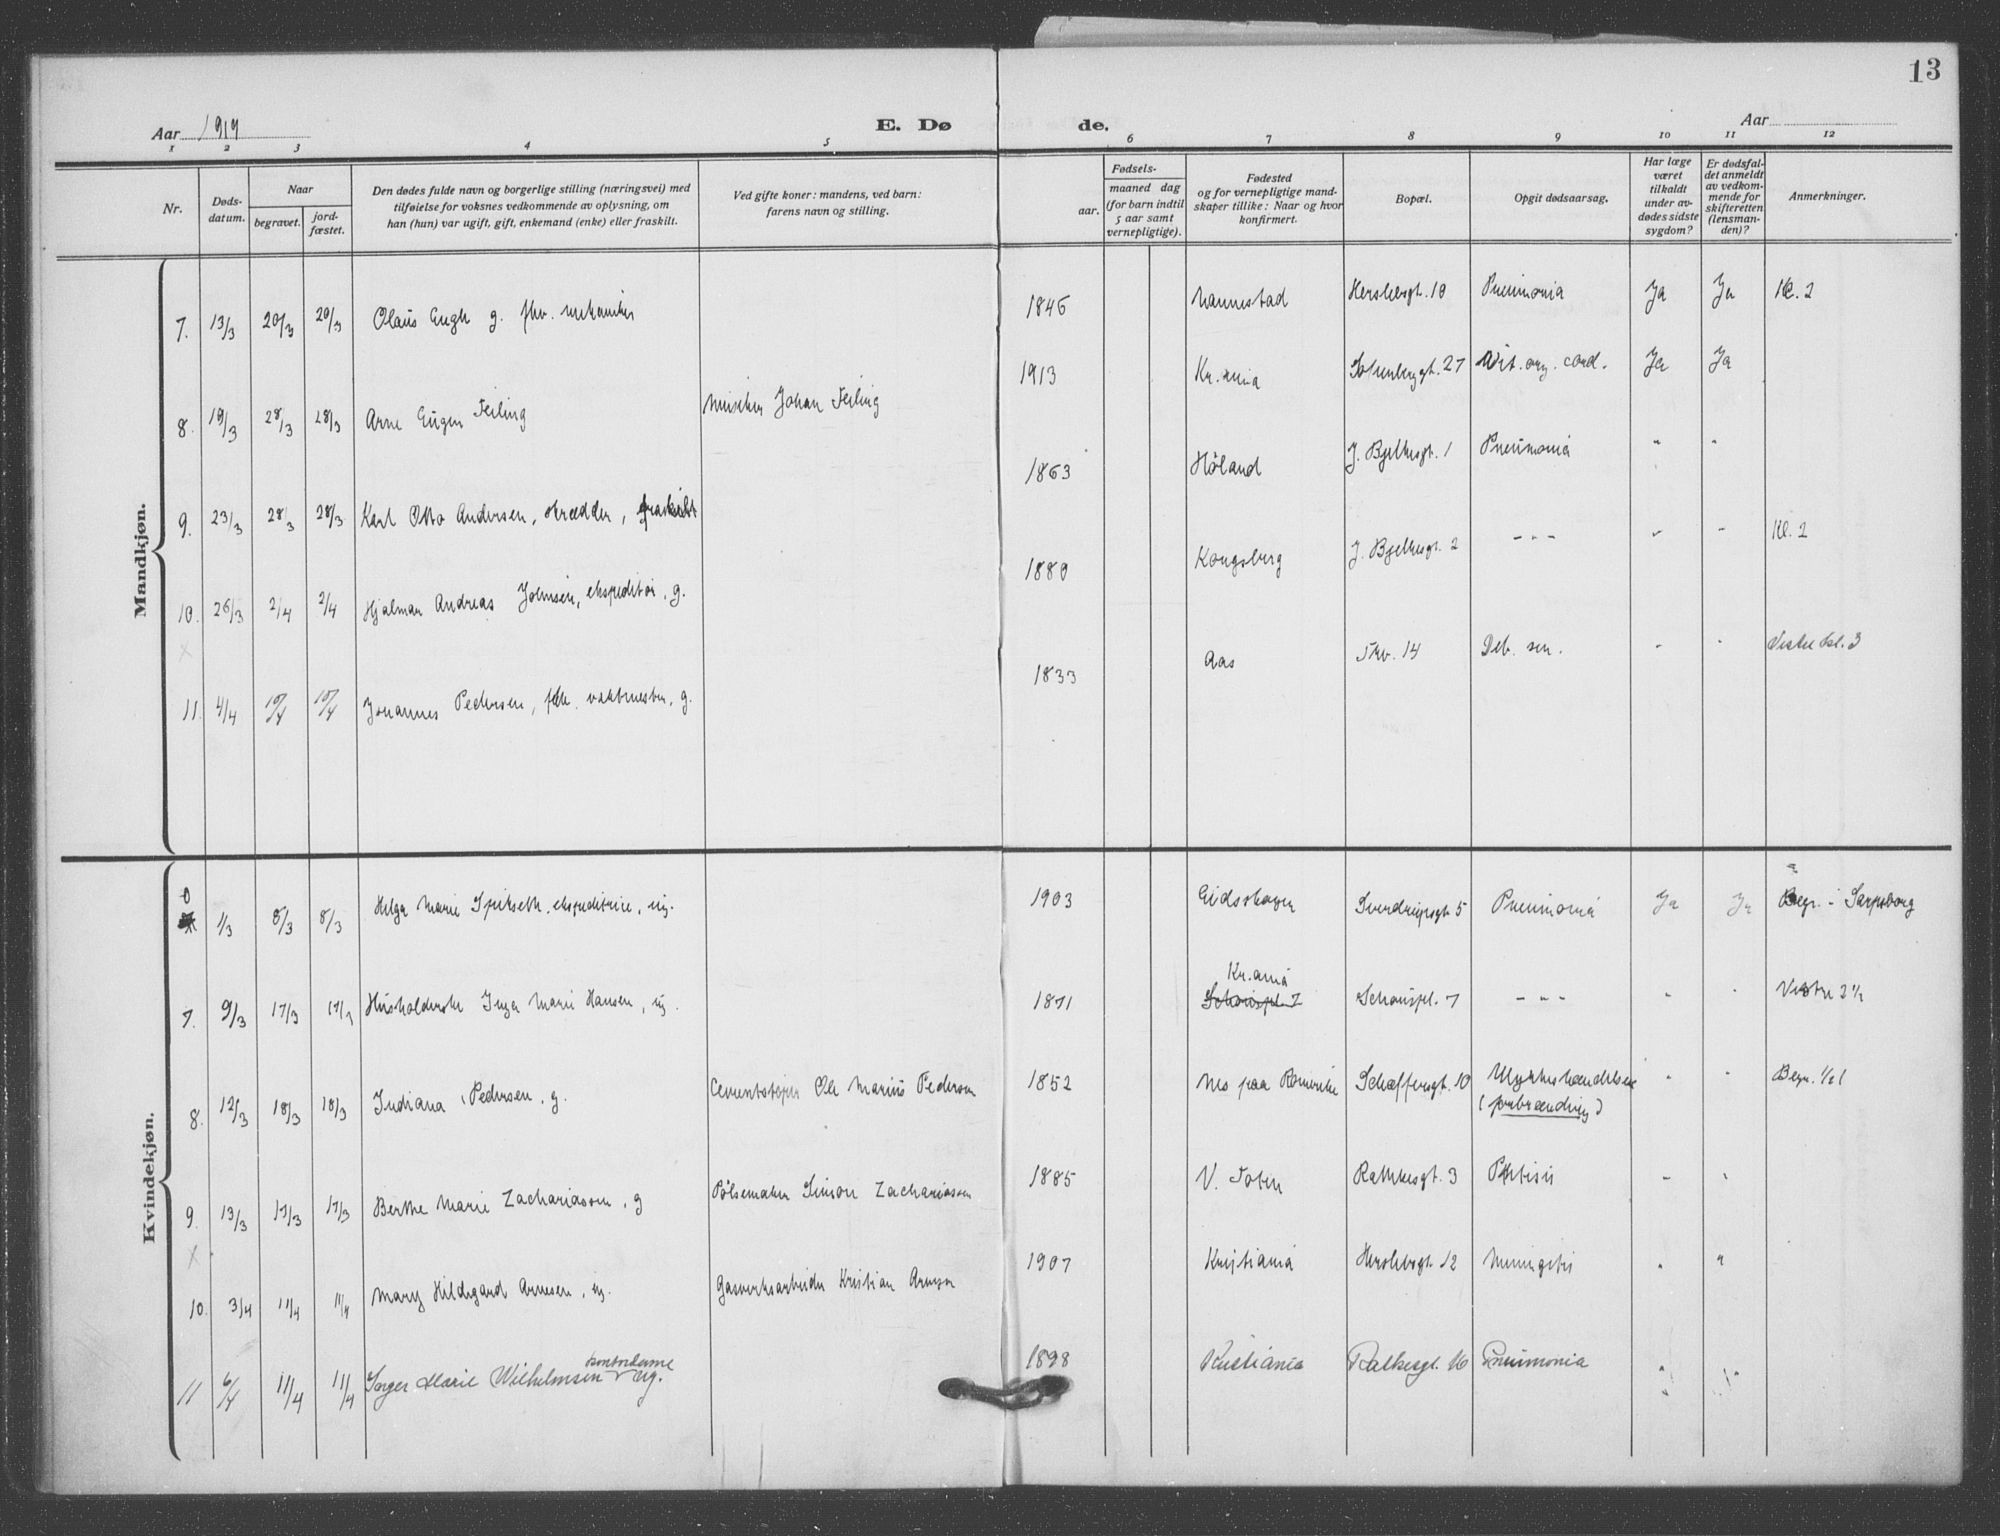 13
Aar 1919
E. Dø de.
Aar
1 2 3 4 5 6 7 8 9 10 11 12
Nr.
Døds-
datum.
Naar
begravet.
jord-
fæstet.
Den dødes fulde navn og borgerlige stilling (næringsvei) med
tilføielse for voksnes vedkommende av oplysning, om
han (hun) var ugift, gift, enkemand (enke) eller fraskilt.
Ved gifte koner: mandens, ved barn:
farens navn og stilling.
Fødsels-
aar.
maaned dag
(for barn indtil
5 aar samt
vernepligtige).
Fødested
og for vernepligtige mand-
skaper tillike: Naar og hvor
konfirmert.
Bopæl.
Opgit dødsaarsag.
Har læge
været
tilkaldt
under av-
dødes sidste
sygdom?
Er dødsfal-
det anmeldt
av vedkom-
mende for
skifteretten
(lensman-
den)?
Anmerkninger.
Mandkjøn.
7. 13/3 20/3 20/3 Olaus Engh g. fhv. mekaniker 1846 Nannestad Herslebsgt. 10 Pneumonia Ja Ja Kl. 2
8. 19/3 28/3 28/3 Arne Eugen Feiling Musiker Johan Feiling 1913 Kr.ania Sofienberggt. 27 Vit. org. cord. Ja Ja
9. 23/3 28/3 28/3 Karl Otto Andersen, skrædder, fraskilt 1863 Høland J. Bjelkesgt. 1 Pneumonia " "
10. 26/3 2/4 2/4 Hjalmar Andreas Johnsen, ekspeditør, g. 1880 Kongsberg J. Bjelkesgt. 2 - " - " - Kl. 2
11. 4/4 10/4 10/4 Johannes Pedersen, vaktmester, g. 1833 Aas 14 Deb. sen. " " Vestre kl. 3
Kvindekjøn.
1/3 8/3 8/3 Helga Marie ekspeditrice, ug. 1903 Eidskogen Sverdrupsgt 5 Pneumonia Ja Ja Begr. i Sarpsborg
7. 9/3 17/3 17/3 Husholderske Inga Marie Hansen, ug. 1871 Kr.ania
Schouspl. 7 Schouspl. 7 - " - " " Vestre 2 1/2
8. 12/3 18/3 18/3 Indiana Pedersen, g. Cementstøper Ole Marius Pedersen 1852 Nes paa Romerike Schæffersgt. 10 Ulykkeshændelse
(forbrænding) " " Begr. 1/2 1
9. 13/3 17/3 17/3 Berthe Marie Zachariassen, g Pølsemaker Simon Zachariassen 1885 V. Toten Rathkesgt. 3 Phtisis " "
10. 3/4 11/4 11/4 Mary Hildegard Arnesen, ug. Gasverksarbeider Kristian Arnesen 1907 Kristiania Herslebsgt 12 Meningitis " "
11 6/4 11/4 11/4 Inger Marie Wilhelmsen kontordame ug. 1898 Kristiania Rathkesgt. 16 Pneumonia " "